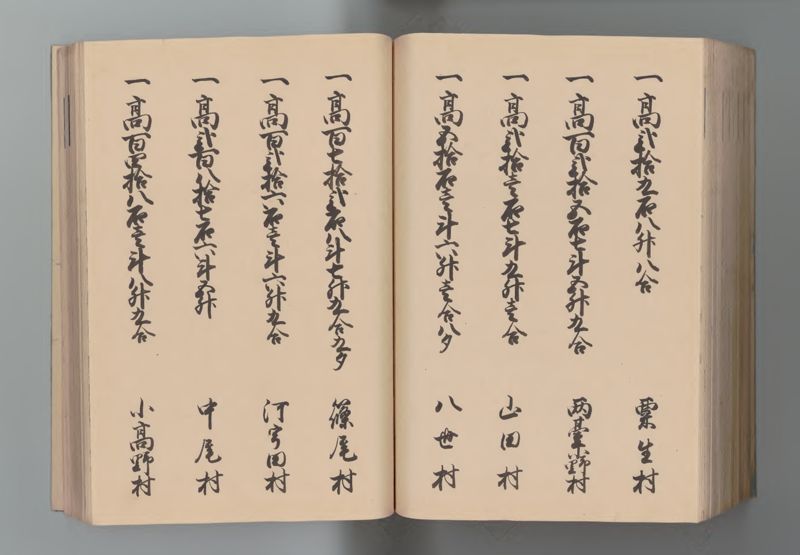 一高弐拾九石八斗八合 粟生村
一高百弐拾五石七斗五升九合 両峯野村
一高弐拾壱石七斗九升壱合 山田村
一高五拾石壱斗六升壱合八夕 八世村
一高百七拾弐石八斗七升九合九夕 篠尾村
一高百弐拾六石壱斗六升九合 河宇田村
一高弐百八拾七石六斗五升 中尾村
一高百四拾八石壱斗八升九合 小高野村